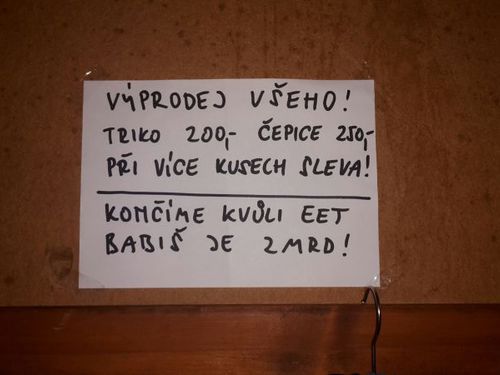 VÝPRODEJ VŠEHO!
TRIKO 200,- ČEPICE 250,-
PŘI VÍCE KUSECH SLEVA!
KONČÍME KVŮLI EET
BABIŠ JE ZMRD!